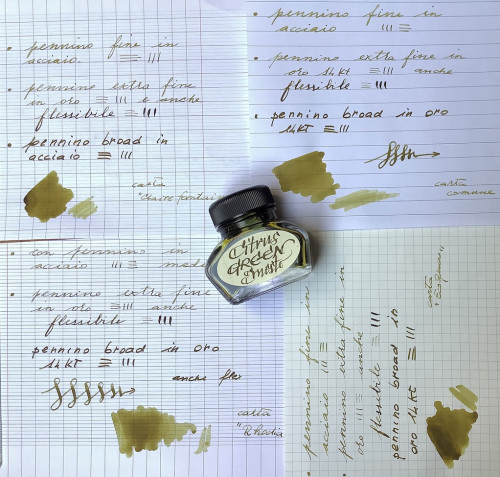 • pennino fine in
acciaio. ≡ |||
• pennino extra fine
in oro ≡ ||| e anche
flessibile ≡ |||
• pennino broad in
acciaio ≡ |||
carta
"Claire fontai
• pennino fine in
acciaio ||| ≡
• pennino extra fine in
oro 14kt ≡ ||| anche
flessibile ≡ |||
• pennino broad in oro
14KT ≡ |||
carta
comune
Citrus
GREEN
• con pennino in
acciaio ||| ≡
• pennino extra fine
in oro ≡ ||| anche
flessibile ≡ |||
pennino broad in oro
14KT ≡ |||
anche flex
carta
"Rhodia
• pennino fine in
acciaio ||| ≡
• pennino extra fine in
oro 14kt ≡ ||| anche
flessibile ≡ |||
• pennino broad in
oro 14KT ≡ |||
carta